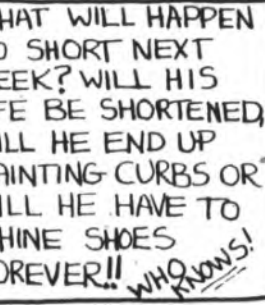 HAT WILL HAPPEN
O SHORT NEXT
EEK? WILL HIS
FE BE SHORTENED,
ILL HE END UP
AINTING CURBS OR
ILL HE HAVE TO
HINE SHOES
OREVER!! WHO KNOWS!